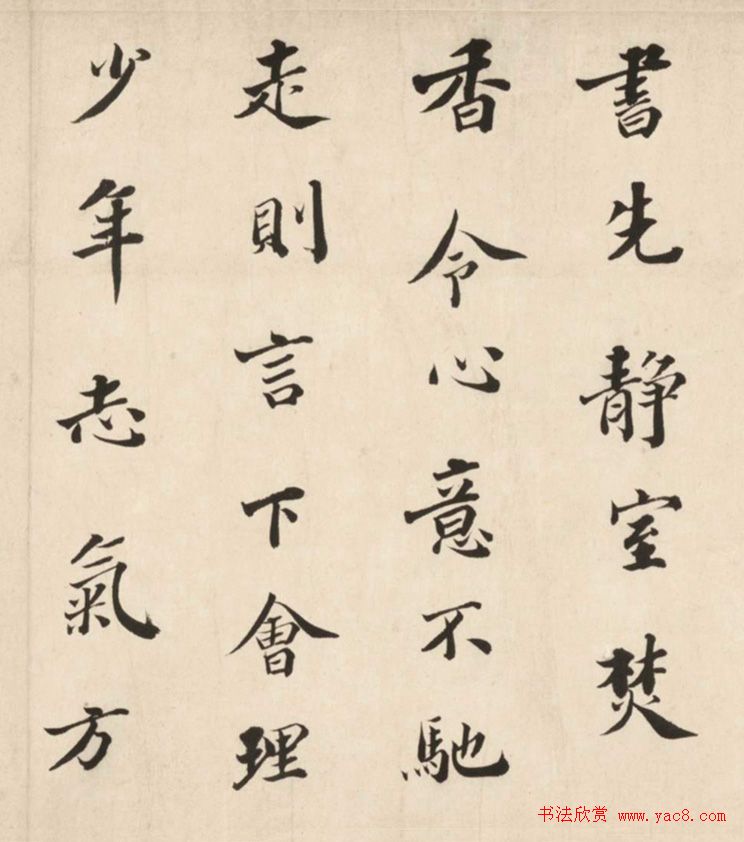 書先静室焚
香令心意不馳
走則言下會理
少年志氣方
书法欣赏 www.yac8.com